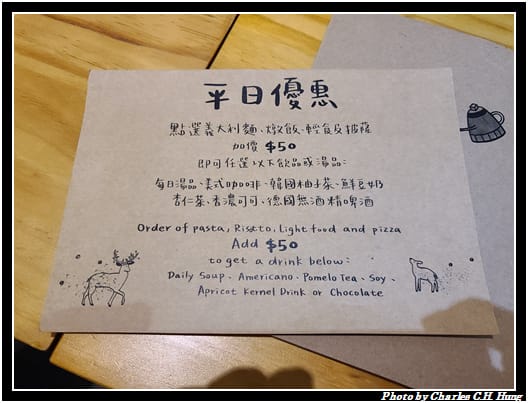 平日優惠
點選義大利麵、燉飯、輕食及披薩
加價 $50
即可任選以下飲品或湯品:
每日湯品、美式咖啡、韓國柚子茶、鮮豆奶
杏仁茶、香濃可可、德國無酒精啤酒
Order of pasta, Risotto, Light food and pizza
Add $50
to get a drink below:
Daily Soup、Americano、Pomelo Tea、Soy、
Apricot Kernel Drink or Chocolate
Photo by Charles C.H. Hung